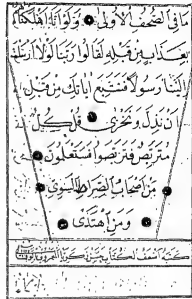 مَا فِي الصُّحُفِ الْأُولَىٰ وَلَوْ أَنَّا أَهْلَكْنَاهُمْ
بِعَذَابٍ مِنْ قَبْلِهِ لَقَالُوا رَبَّنَا لَوْلَا أَرْسَلْتَ
إِلَيْنَا رَسُولًا فَنَتَّبِعَ آيَاتِكَ مِنْ قَبْلِ
أَنْ نَذِلَّ وَنَخْزَىٰ قُلْ كُلٌّ
مُتَرَبِّصٌ فَتَرَبَّصُوا فَسَتَعْلَمُونَ
مَنْ أَصْحَابُ الصِّرَاطِ السَّوِيِّ
وَمَنِ اهْتَدَىٰ
كتبه اضعف الكتاب